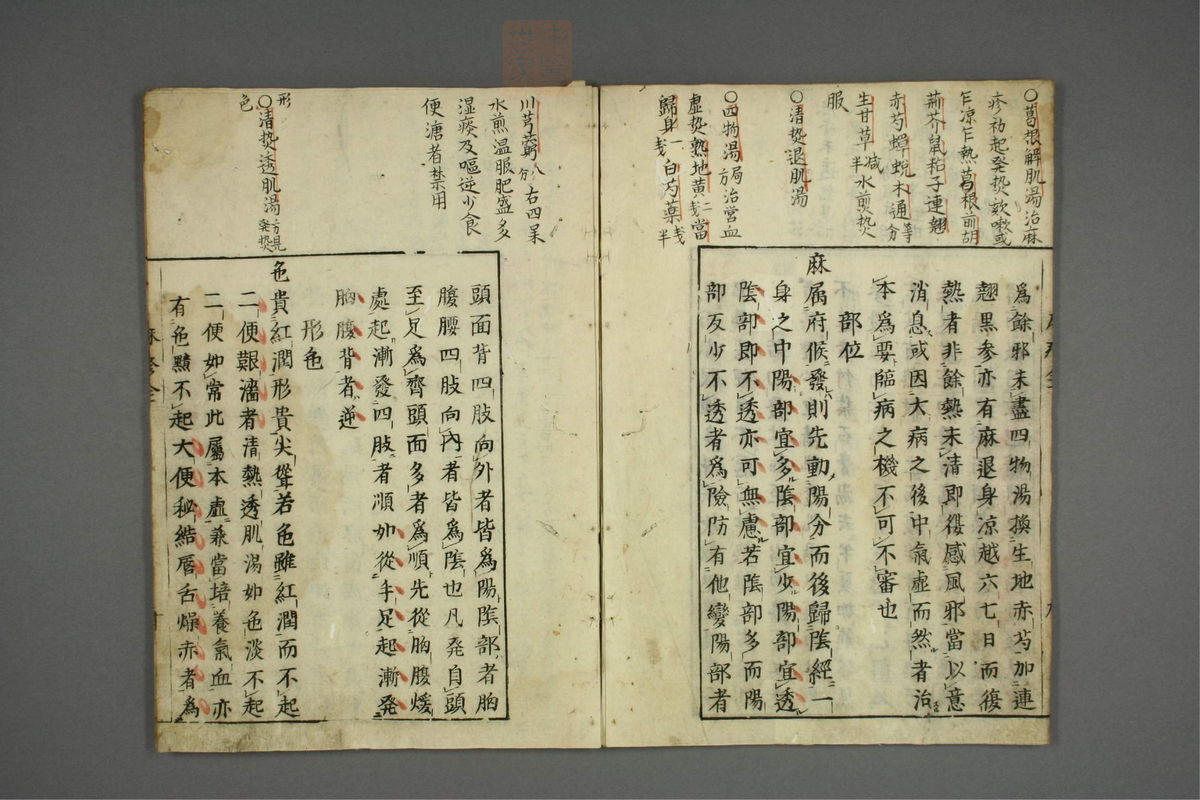 ○葛根解肌湯治麻
疹初起発热欬嗽或
乍凉乍熱葛根前胡
荊芥鼠粘子連翹
赤芍蟬蛻木通等分
生甘草減半水煎热
服
○清热退肌湯
○四物湯局方治営血
虚热熟地黄二戔當
歸身一戔白芍薬戔半
為餘邪未盡四物湯換生地赤芍加連
翹黒参亦有麻退身凉越六七日而復
熱者非餘熱未清即復感風邪當以意
消息或因大病之後中氣虚而然者治
本為要臨病之機不可不審也
部位
麻屬府候發則先動陽分而後歸陰經一
身之中陽部宜多陰部宜少陽部宜透
陰部即不透亦可無慮若陰部多而陽
部反少不透者為險防有他變陽部者
川芎藭八分右四味
水煎温服肥盛多
湿痰及嘔逆少食
便溏者禁用
形色
○清热透肌湯方見発热
頭面背四肢向外者皆為陽陰部者胸
腹腰四肢向内者皆為陰也凡発自頭
至足為齊頭面多者為順先從胸腹煖
處起漸發四肢者順如從手足起漸発
胸腹背者逆
形色
色貴紅潤形貴尖聳若色雖紅潤而不起
二便艱濇者清熱透肌湯如色淡不起
二便如常此屬本虚兼當培養氣血亦
有色黯不起大便秘結唇舌燥赤者為